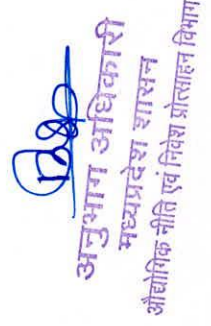 अनुभाग अधिकारी
मध्यप्रदेश शासन
औद्योगिक नीति एवं निवेश प्रोत्साहन विभाग